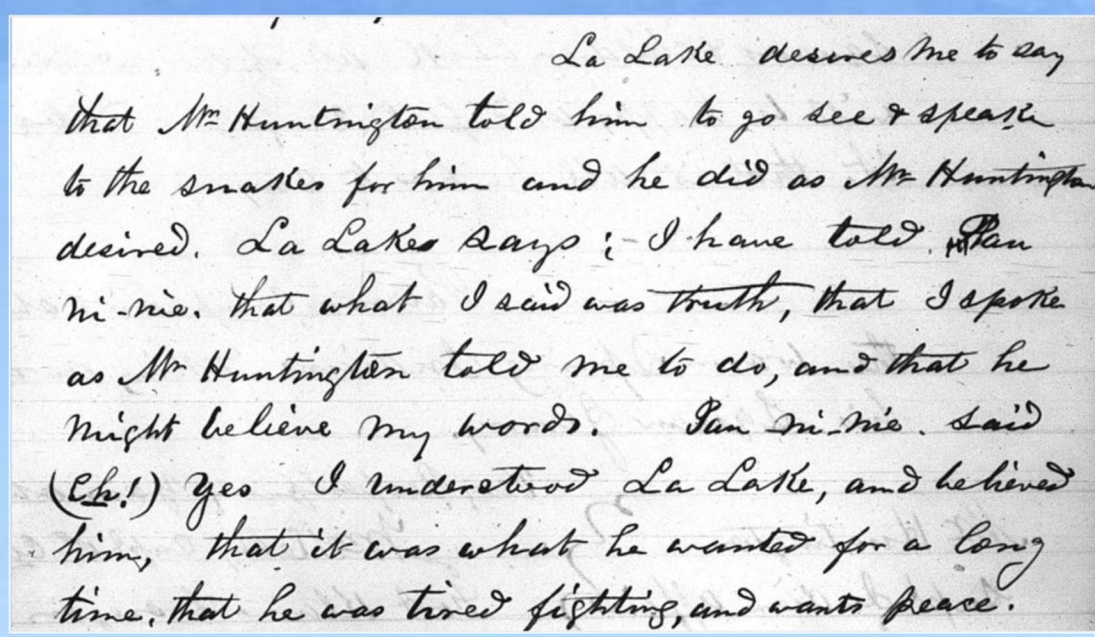 La Lake desires me to say
that Mr Huntington told him to go see & speak
to the snakes for him and he did as Mr Huntington
desired. La Lake says :- I have told Pan
ni-nie. that what I said was truth, that I spoke
as Mr Huntington told me to do, and that he
might believe my words. Pan ni-nie. said
(Eh!) Yes I understood La Lake, and believed
him, that it was what he wanted for a long
time, that he was tired fighting, and wants peace.